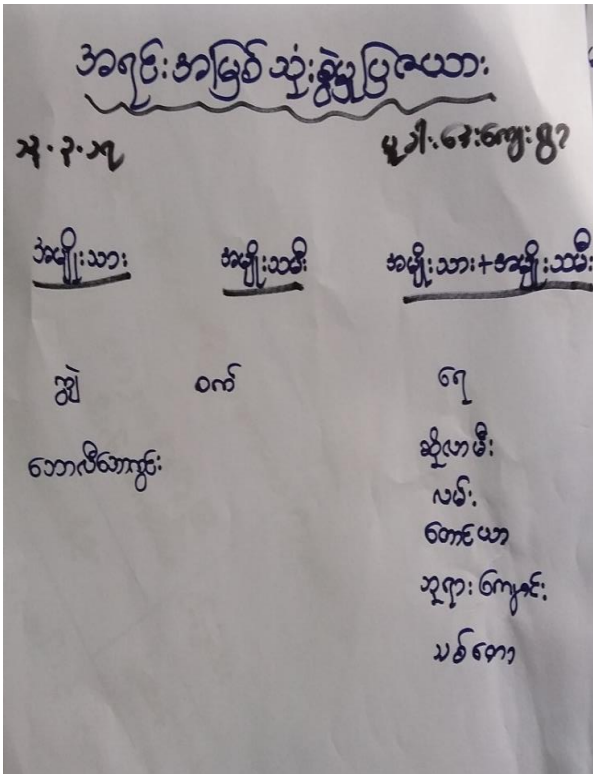 အရင်းအမြစ် သုံးစွဲမှုပြဇယား
အမျိုးသား အမျိုးသမီး အမျိုးသား+အမျိုးသမီး
ကျွဲ ဝက် ရေ
ဘောလီဘောကွင်း ဆိုလာမီး
လမ်း
တောင်ယာ
ဘုရားကျောင်း
သစ်တော